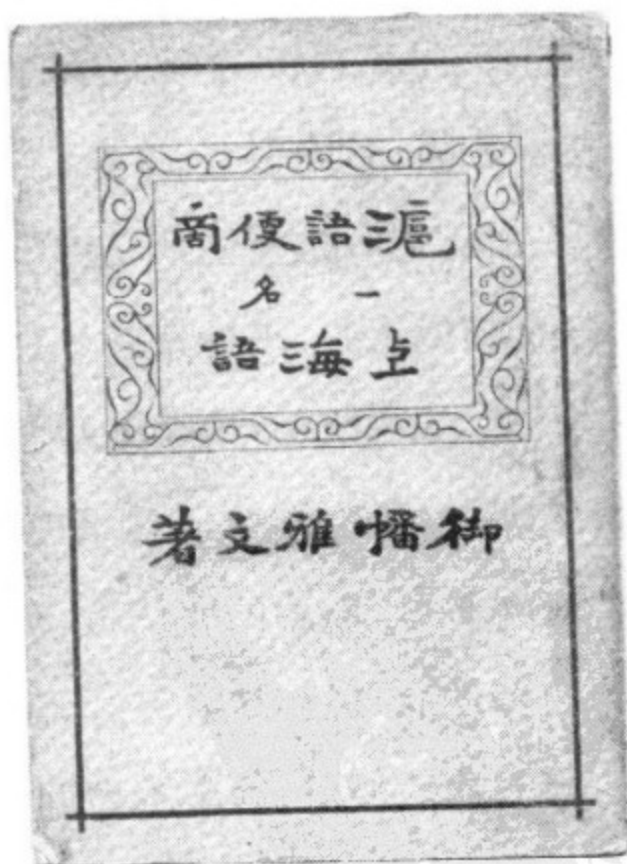 滬語便商
一名
上海語
御幡雅文著